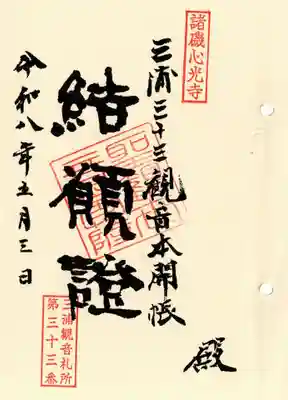 諸磯心光寺
三浦三十三観音本開帳
殿
結願證
令和八年五月三日
三浦観音札所
第三十三番